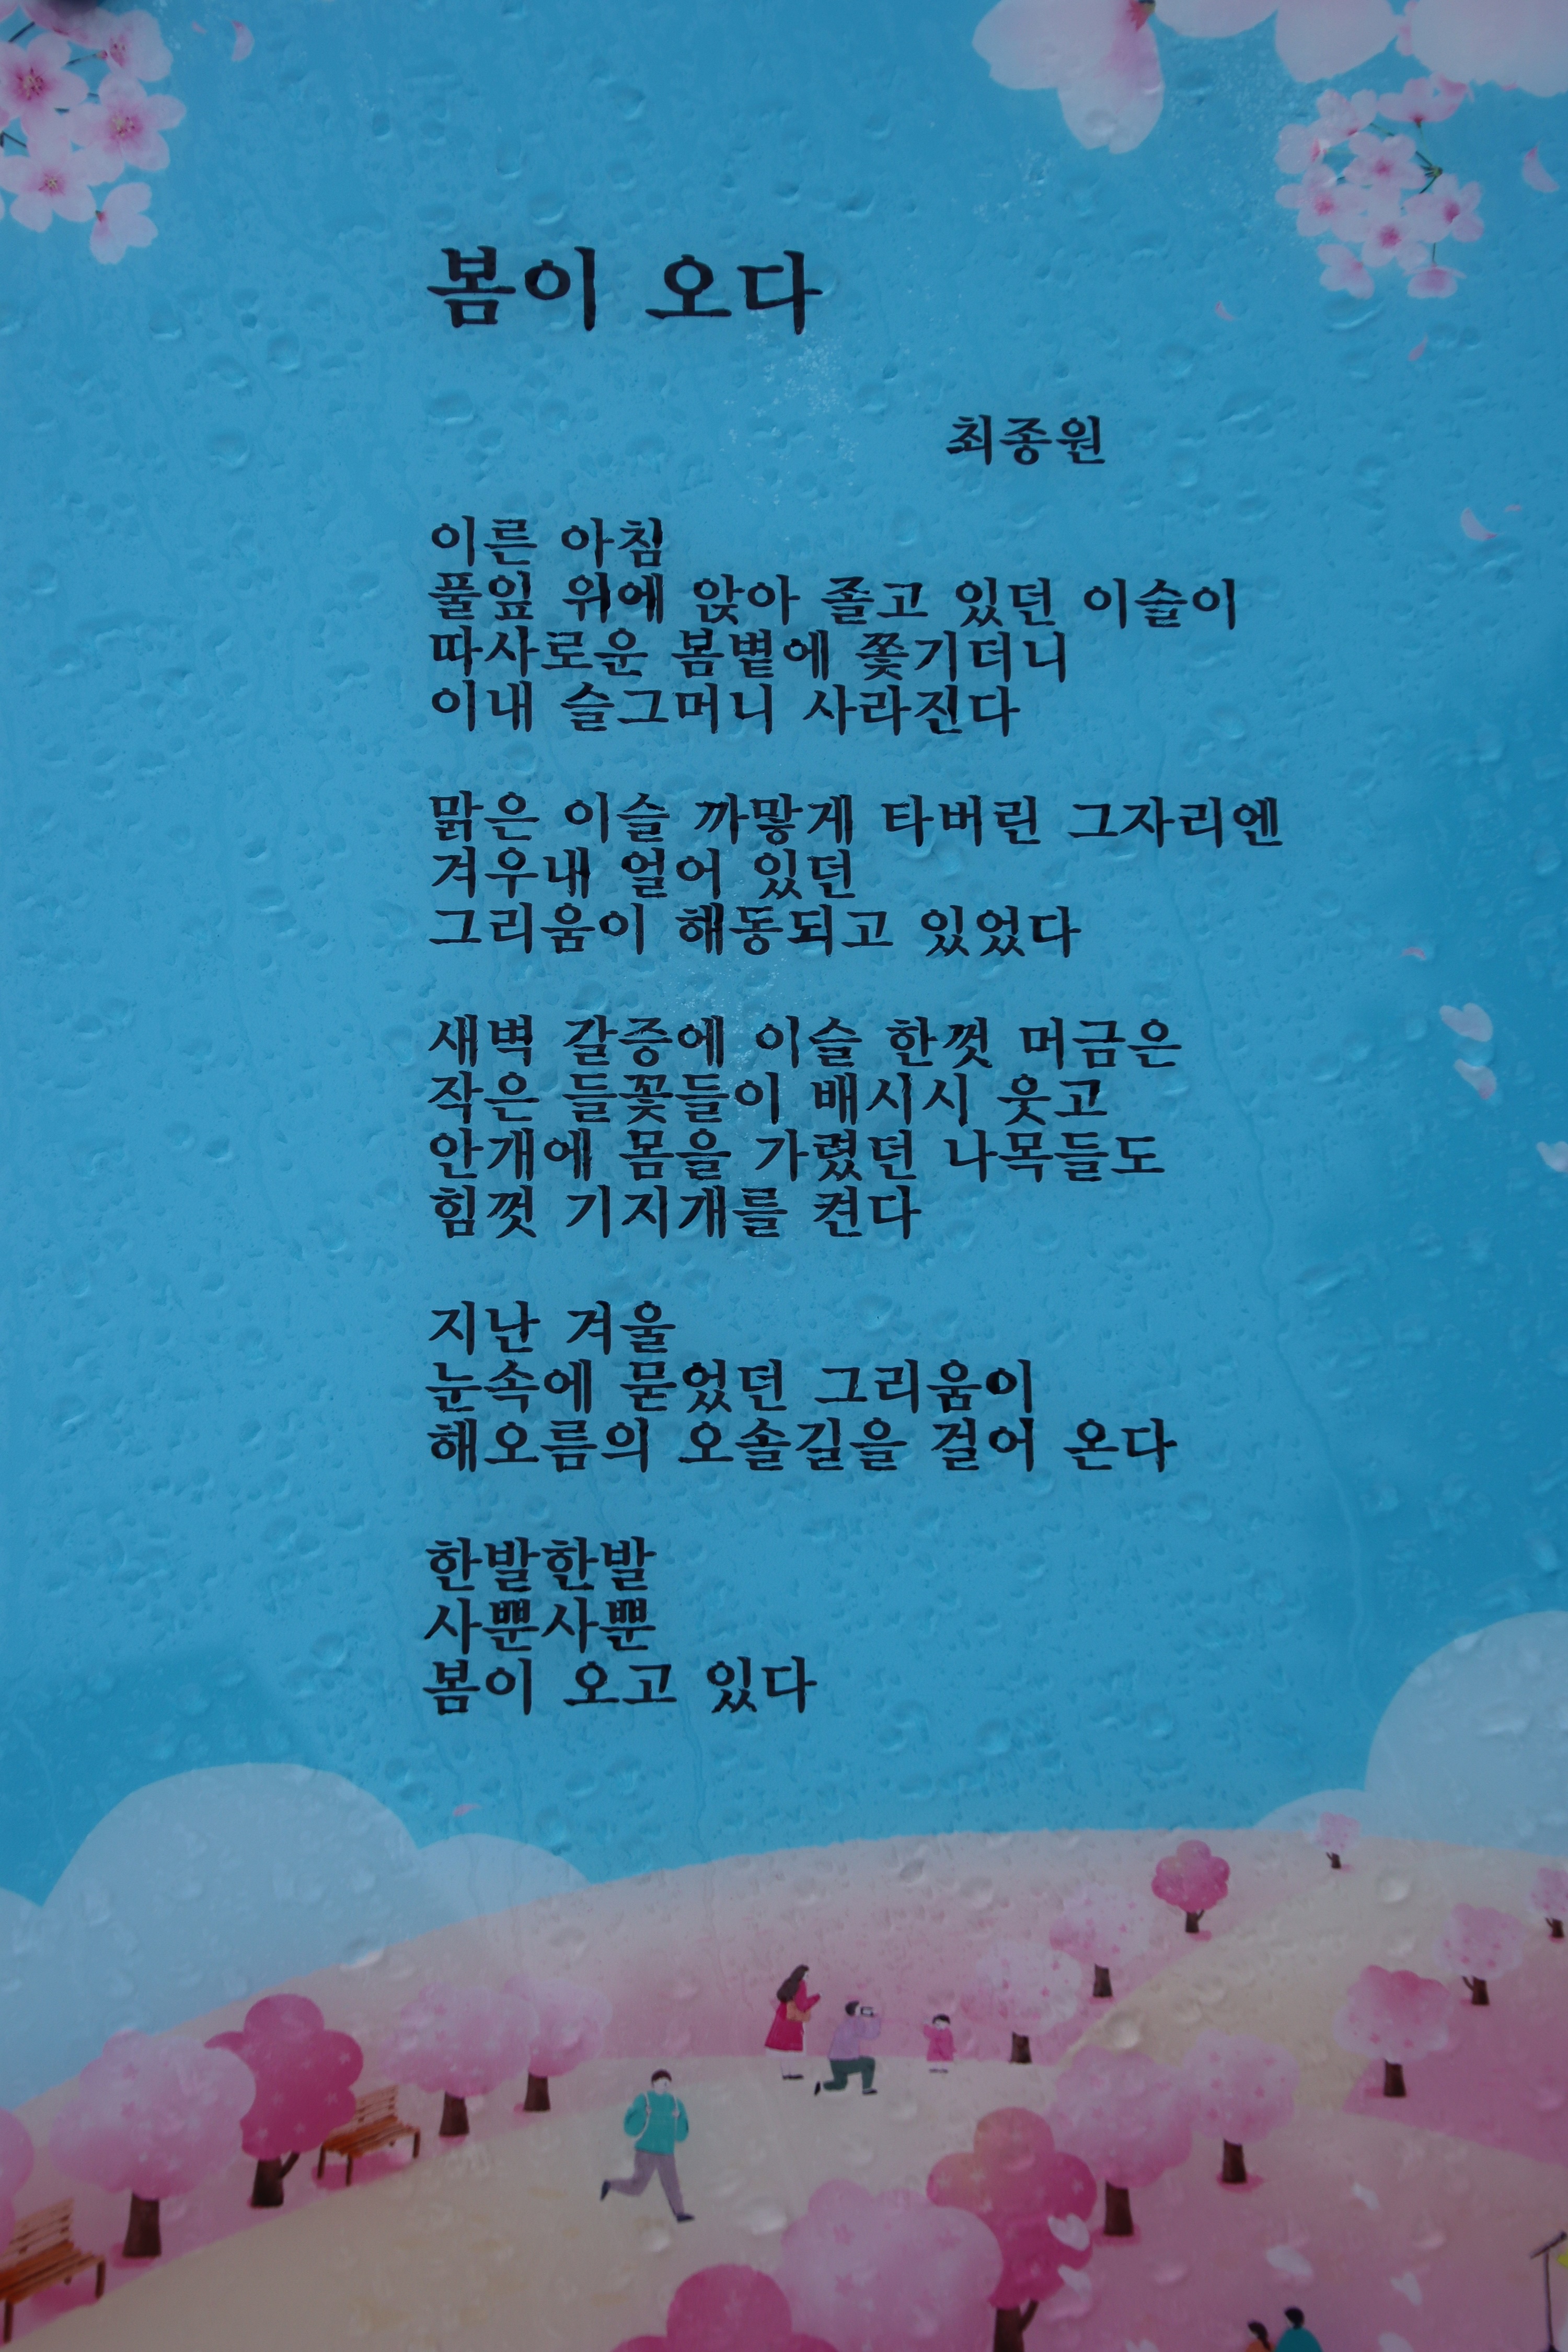 봄이 오다
최종원
이른 아침
풀잎 위에 앉아 졸고 있던 이슬이
따사로운 봄볕에 쫓기더니
이내 슬그머니 사라진다
맑은 이슬 까맣게 타버린 그자리엔
겨우내 얼어 있던
그리움이 해동되고 있었다
새벽 갈증에 이슬 한껏 머금은
작은 들꽃들이 배시시 웃고
안개에 몸을 가렸던 나목들도
힘껏 기지개를 켠다
지난 겨울
눈속에 묻었던 그리움이
해오름의 오솔길을 걸어 온다
한발한발
사뿐사뿐
봄이 오고 있다